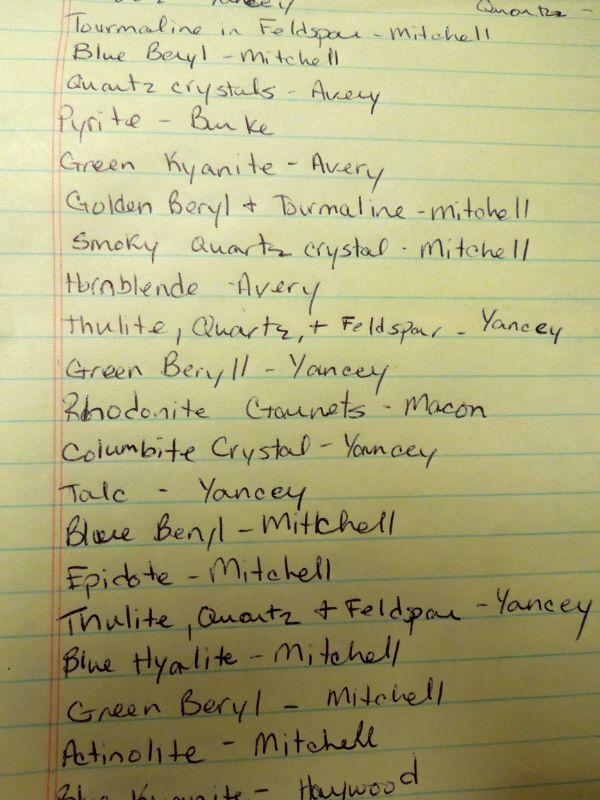 Yancey Quartz -
Tourmaline in Feldspar - Mitchell
Blue Beryl - Mitchell
Quartz crystals - Avery
Pyrite - Burke
Green Kyanite - Avery
Golden Beryl + Tourmaline - mitchell
Smoky Quartz crystal - Mitchell
Hornblende - Avery
Thulite, Quartz, + Feldspar - Yancey
Green Beryll - Yancey
Rhodonite Garnets - Macon
Columbite Crystal - Yancey
Talc - Yancey
Blue Beryl - Mitkhell
Epidote - Mitchell
Thulite, Quartz + Feldspar - Yancey
Blue Hyalite - Mitchell
Green Beryl - Mitchell
Actinolite - Mitchell
Blue Kyanite - Haywood